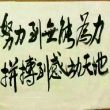 努力到无能為力
拼搏到感动天地